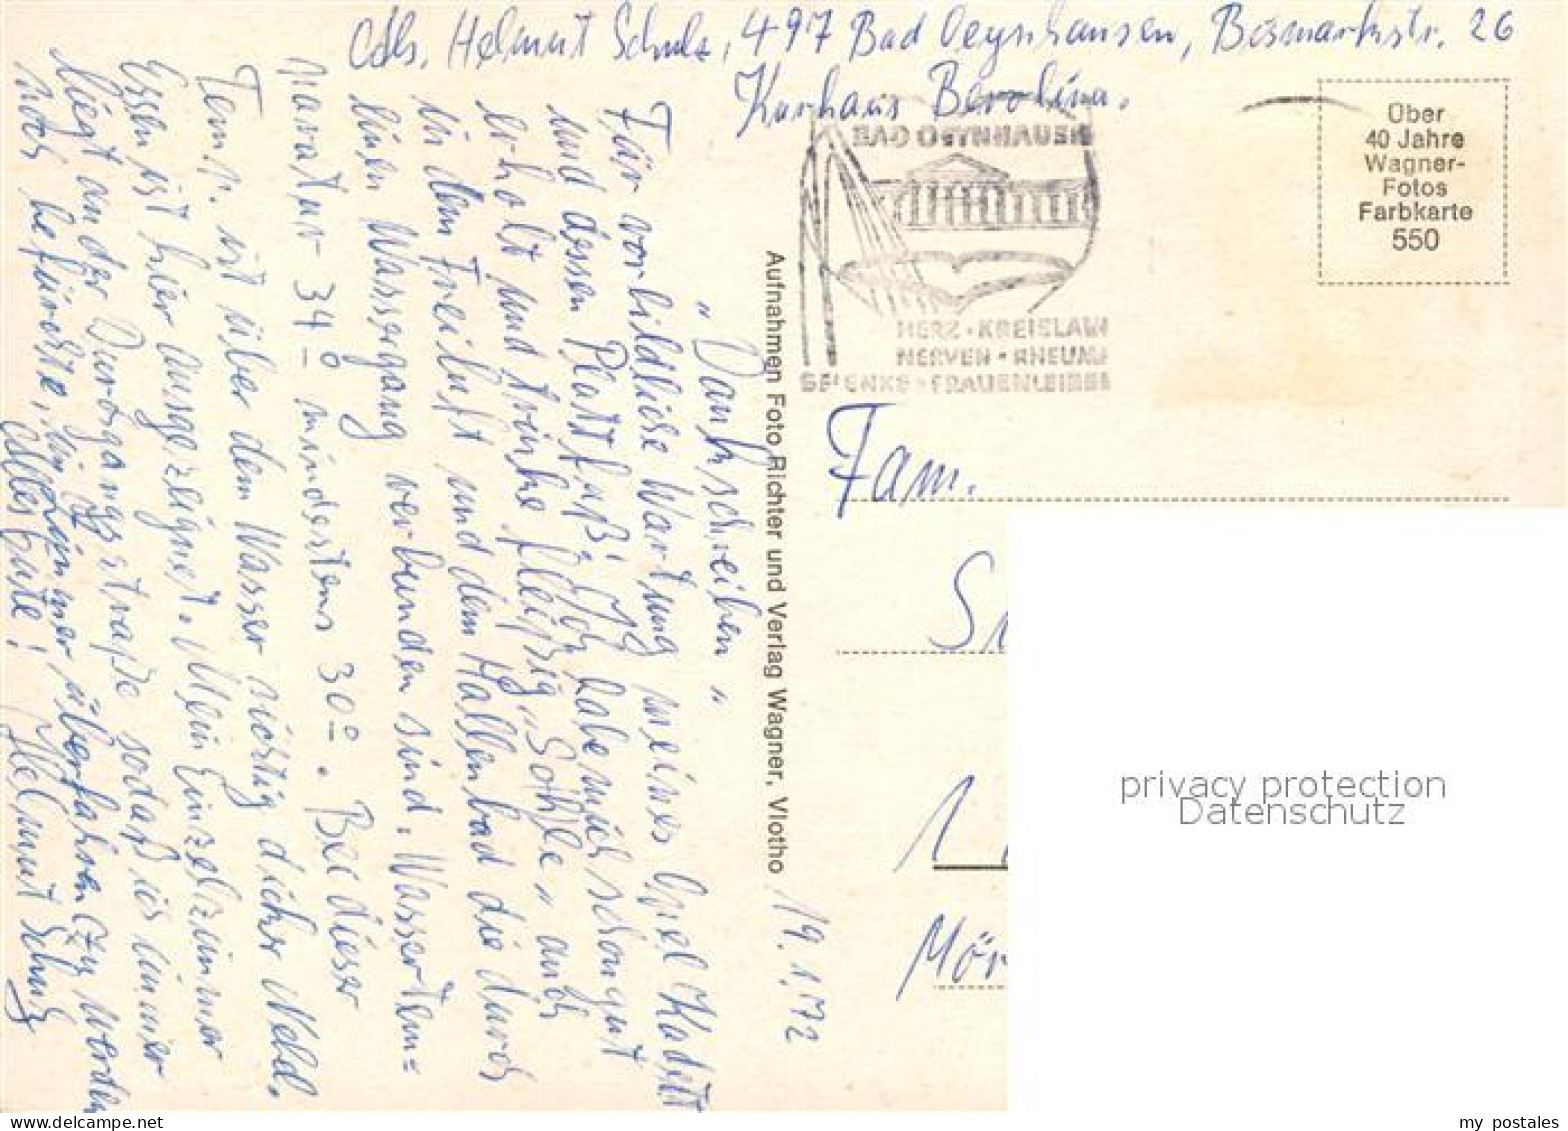 Abs. Helmut Schulz, 497 Bad Oeynhausen, Bismarkstr. 26
Kurhaus Berolina.
BAD OEYNHAUSEN
HERZ · KREISLAUF
NERVEN · RHEUMA
GELENKE · FRAUENLEIDEN
Über
40 Jahre
Wagner-
Fotos
Farbkarte
550
Fam.
Mör
19.1.72
Aufnahmen Foto Richter und Verlag Wagner, Vlotho
„Dankschreiben"
Für vorbildliche Wartung meines Opel Kadett
und dessen Plattfuß! Ich habe mich schon gut
erholt und trinke fleißig „Sohle" auch
in dem Freiluft und dem Hallenbad die durch
einen Wassergang verbunden sind. Wassertem=
paratur 34° mindestens 30°. Bei dieser
Temp. ist über dem Wasser richtig dicker Nebel.
Essen ist hier ausgezeignet. Mein Einzelzimmer
liegt an der Durchgangsstraße sodaß ich immer
noch befürchte, im Zimmer überfahren zu werden
Alles Gute! Helmut Schulz
privacy protection
Datenschutz
my postales